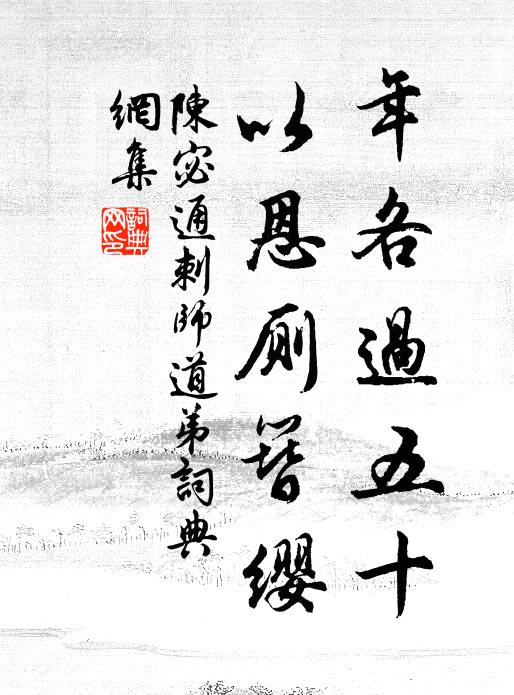 年各過五十
以恩厠簪纓
陳宓通刺師道弟詞典
網集
詞典網印